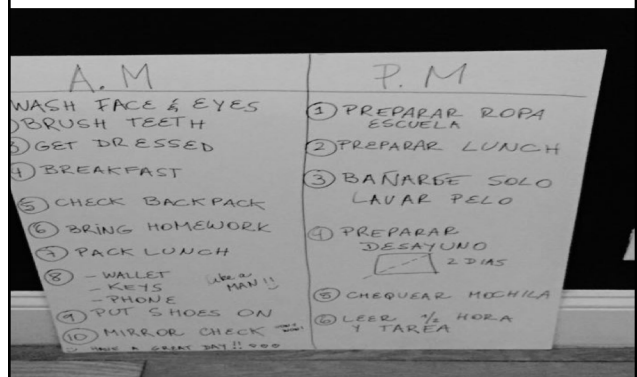 A.M
WASH FACE & EYES
BRUSH TEETH
③ GET DRESSED
④ BREAKFAST
⑤ CHECK BACKPACK
⑥ BRING HOMEWORK
⑦ PACK LUNCH
⑧ - WALLET
- KEYS
- PHONE
like a
MAN!!
⑨ PUT SHOES ON
⑩ MIRROR CHECK
HAVE A GREAT DAY!!
P.M
① PREPARAR ROPA
ESCUELA
② PREPARAR LUNCH
③ BAÑARSE SOLO
LAVAR PELO
④ PREPARAR
DESAYUNO
2 DIAS
⑤ CHEQUEAR MOCHILA
⑥ LEER 1/2 HORA
Y TAREA